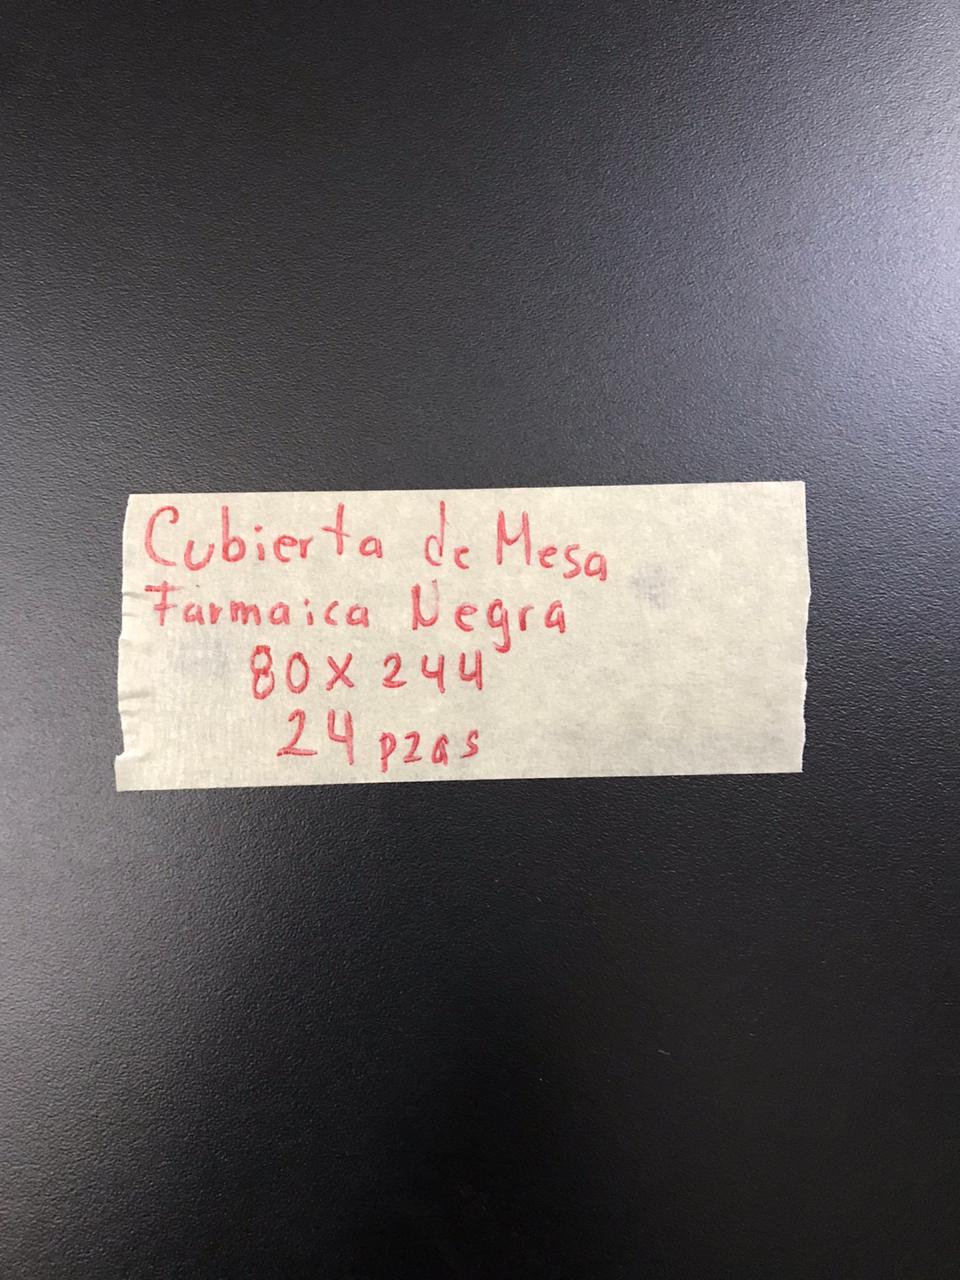 Cubierta de Mesa
Farmaica Negra
80 X 244
24 pzas